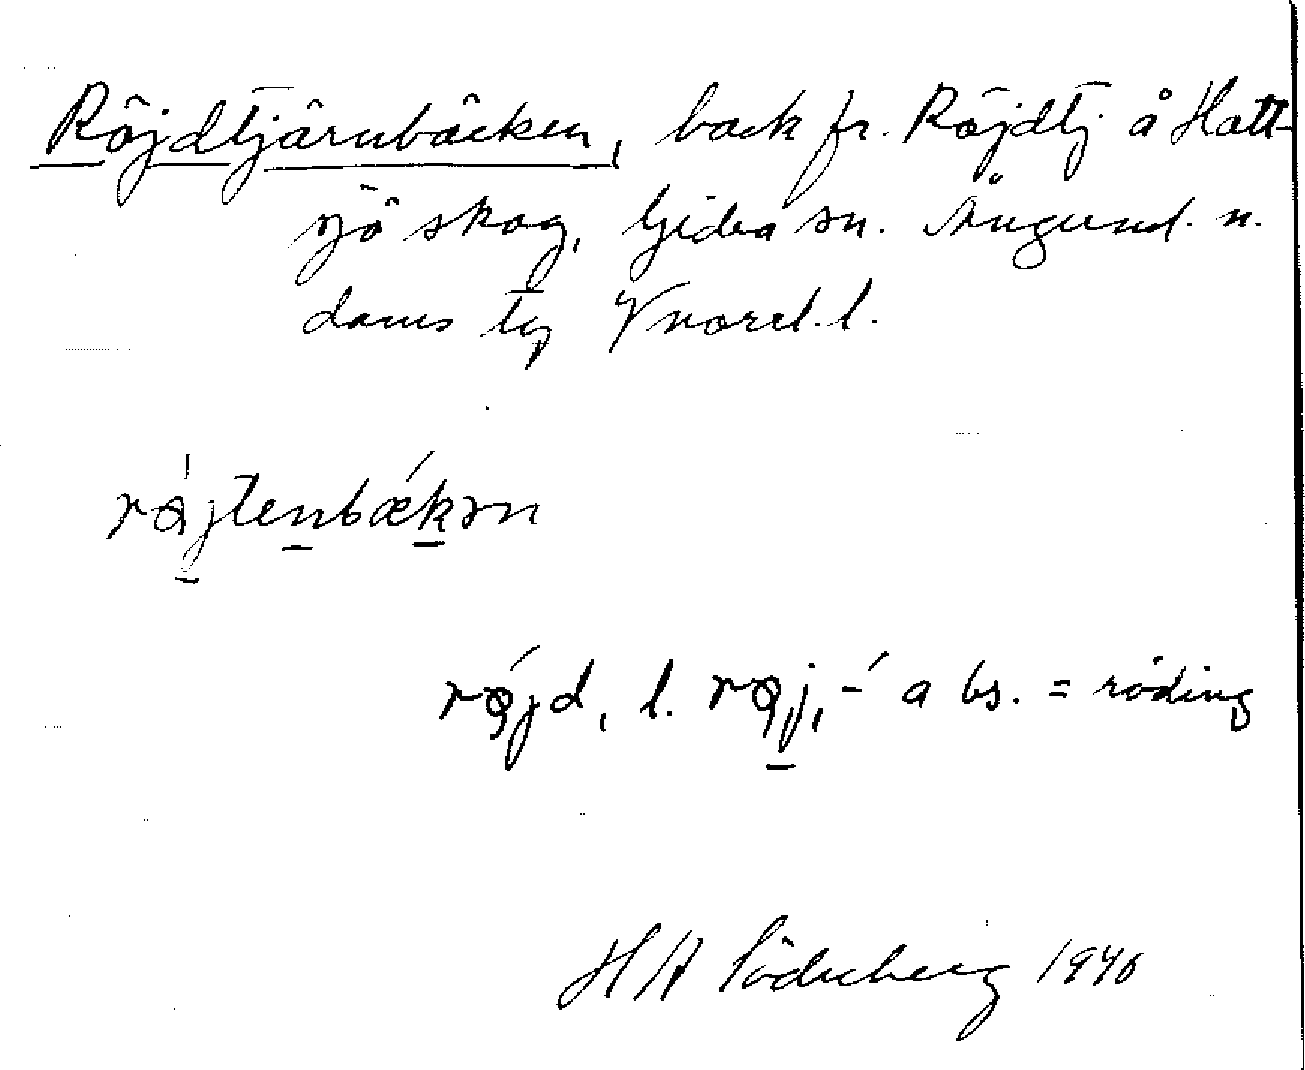 Röjdtjärnbäcken, bäck fr. Röjdtj. å Hatt-
sjö skog, Gideå sn. Ångerml. n.
doms lg Vnorrl. l.
röjtenbækən
röjd, l. röj, -´ a bs. = röding
H W Söderberg 1940